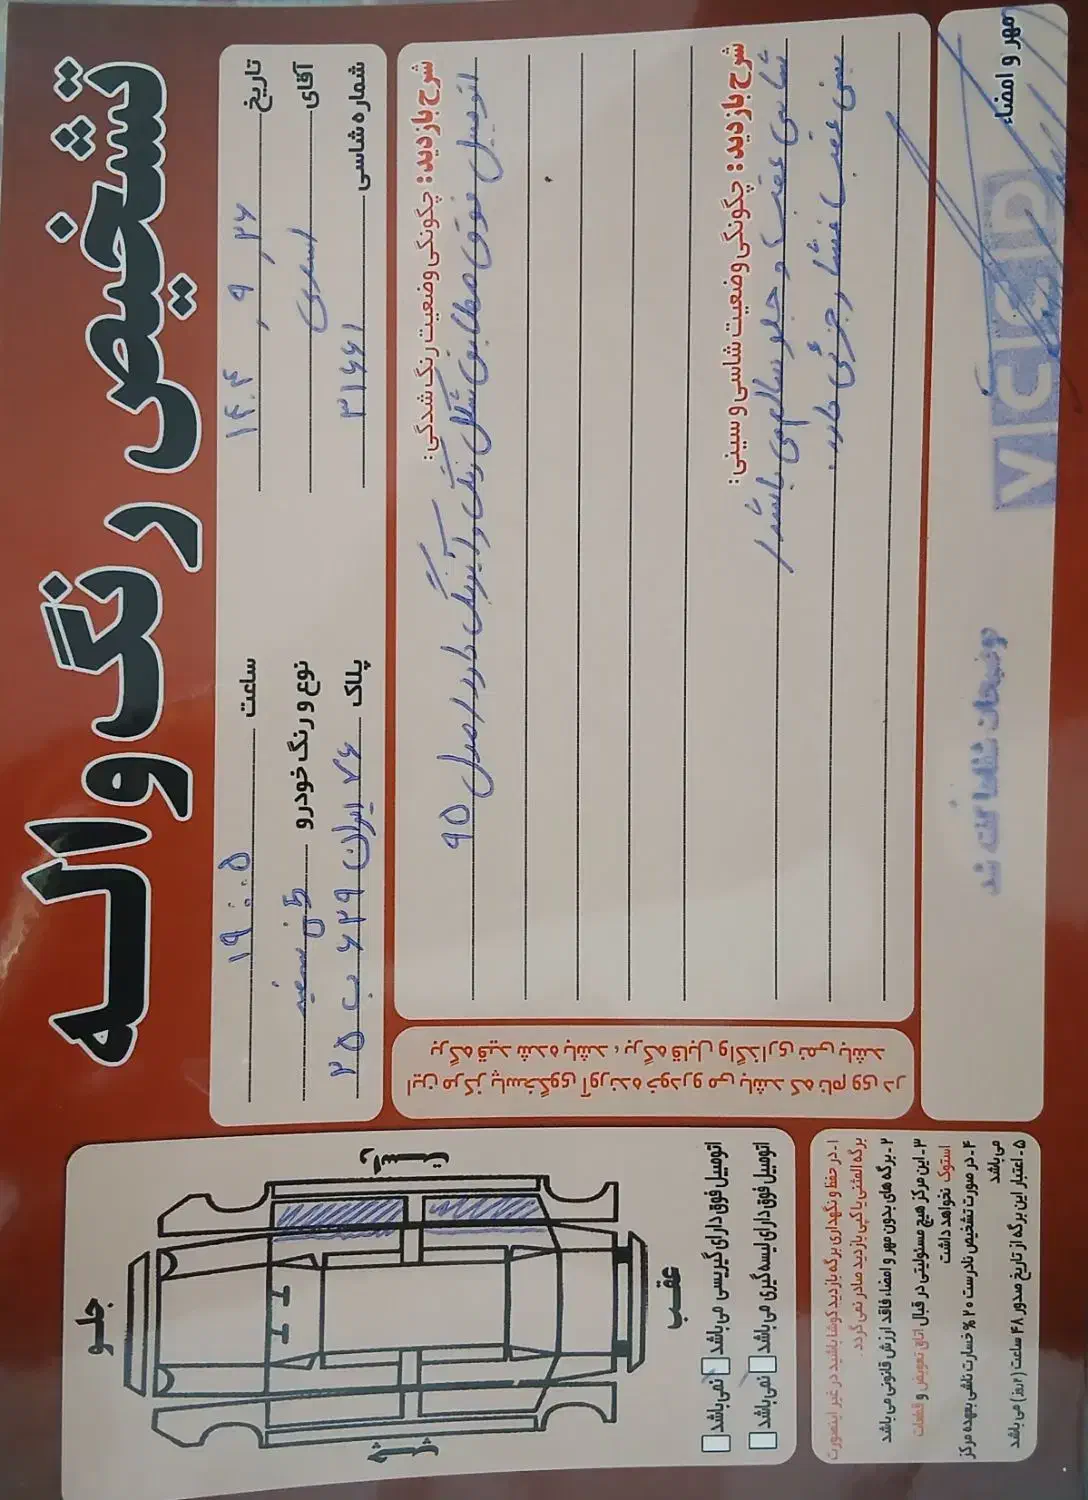 تشخیص رنگ واله
تاریخ ۱۴۰۴، ۹، ۲۶ ساعت ۱۹:۰۰
آقای اسدی نوع و رنگ خودرو سفید
شماره شاسی ۳۱۶۶۱ پلاک ۷۶ ایران ۶۲۹ ب ۲۵
شرح بازدید: چگونگی وضعیت رنگ شدگی:
اتومبیل فوق مطابق شکل رنگی و آبرنگ دارد / مدل ۹۵
شرح بازدید: چگونگی وضعیت شاسی و سینی:
شاسی عقب و جلو سالم می باشد /
سینی عقب فشار جزئی دارد.
مهر و امضاء
VCD
توضیحات شفاها گفته شد
این مرکز پاسخگوی آورنده خودرو می باشد که نام وی در
برگه قید شده باشد، برگه قابل واگذاری نمی باشد
جلو
راست
چپ
عقب
اتومبیل فوق دارای گیربسی می باشد نمی باشد
اتومبیل فوق دارای لیسه گیری می باشد نمی باشد
۱- در حفظ و نگهداری برگه بازدید کوشا باشید در غیر اینصورت
برگه المثنی یا کپی بازدید صادر نمی گردد.
۲- برگه های بدون مهر و امضاء فاقد ارزش قانونی می باشد
۳- این مرکز هیچ مسئولیتی در قبال اتاق تعویض و قطعات
استوک نخواهد داشت
۴- در صورت تشخیص نادرست ۲۰% خسارت ناشی بعهده مرکز
می باشد
۵- اعتبار این برگه از تاریخ صدور ۴۸ ساعت (۲ روز) می باشد